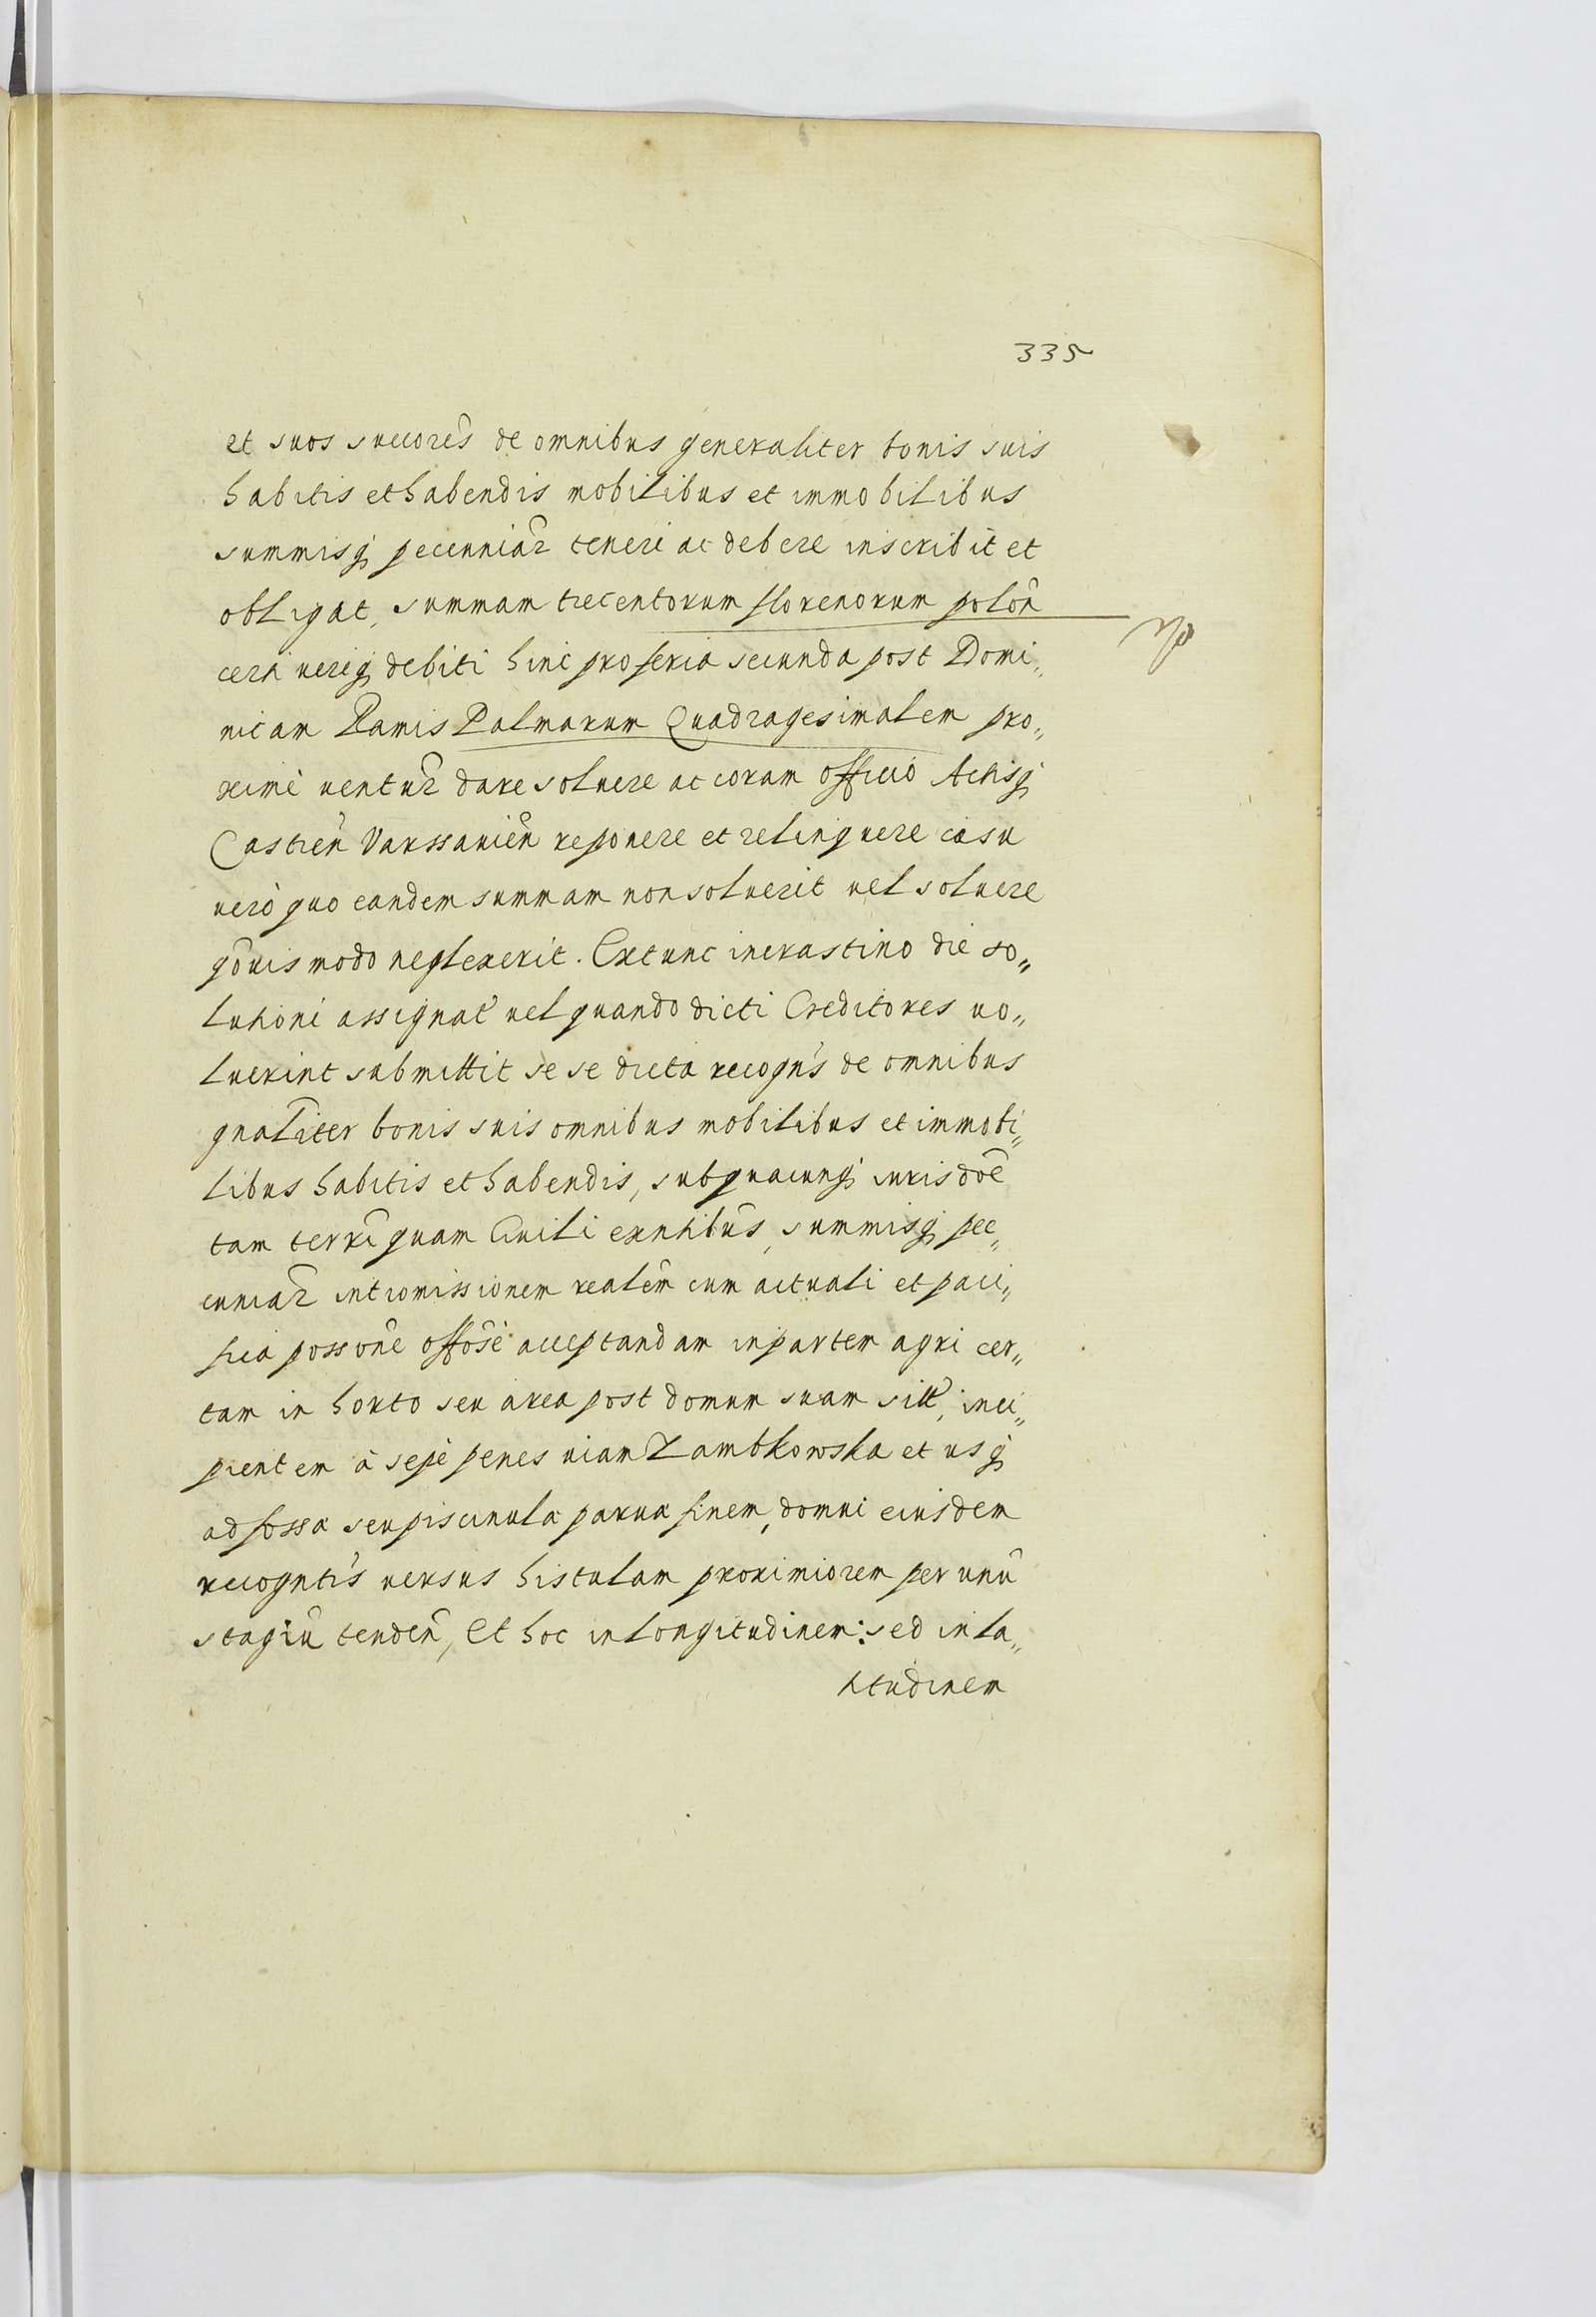 335
et suos succores de omnibus generaliter bonis suis
habitis et habendis mobilibus et immobilibus
summisq pecunniar teneri ac debere inscribit et
obligat, summam trecentorum florenorum polon
certi veriq debiti hinc pro feria secunda post Domi„
nicam Ramis Palmarum Quadragesimalem pro„
ximè ventur dare solvere ac coram officio Actisq
Castren Varssavien reponere et relinquere casu
verò quo eandem summam non solverit vel solvere
qovis modo neglexerit. Extunc in crastino die so„
lutioni assignat vel quando dicti Creditores vo„
luerint submittit se se dicta recogns de omnibus
gnaliter bonis suis omnibus mobilibus et immobi„
libus habitis et habendis, sub quacunq jurisdoe
tam terri quam Civili exntibus, summisq pec„
cuniar intromissionem realem cum actuali et paci„
fica possone offose acceptandam in partem agri cer„
tam in horto seu area post domum suam sitt, inci„
pientem à sepe penes viam Zambkowska et usq
ad fossa seu piscinula parva finem, domui eiusdem
recogntis versus histulam proximiorem per unu
stagiu tenden, Et hoc in longitudinem: sed in la„
titudinem